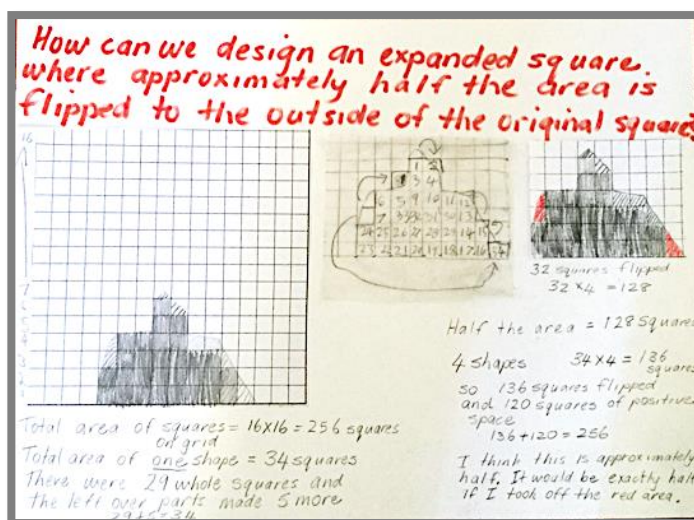 How can we design an expanded square.
where approximately half the area is
flipped to the outside of the original square
16
7
6
5
4
3
2
1 2
3 4
6 5 9 10 11 12
24 25 26 27 28 29 14 15
23 22 21 20 19 18 17 16
32 squares flipped
32 x 4 = 128
Half the area = 128 squares
4 shapes 34x4 = 136
squares
so 136 squares flipped
and 120 squares of positive
space
136+120 = 256
I think this is approximately
half. It would be exactly half
if I took off the red area.
Total area of squares = 16x16 = 256 squares
on grid
Total area of one shape = 34 squares
There were 29 whole squares and
the left over parts made 5 more
29+5=34